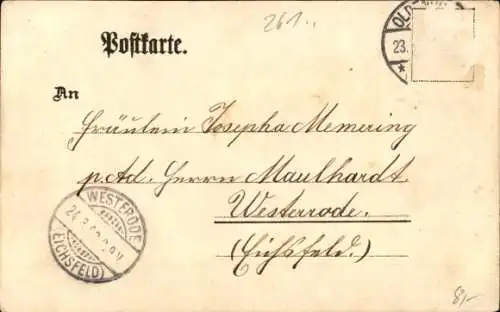 261..
OLD
23.
*
Postkarte.
An
Fräulein Josepha Memering
p. Ad. Herrn Maulhardt
Westerrode.
(Eichsfeld.)
WESTERODE
24.
(EICHSFELD)
8,-